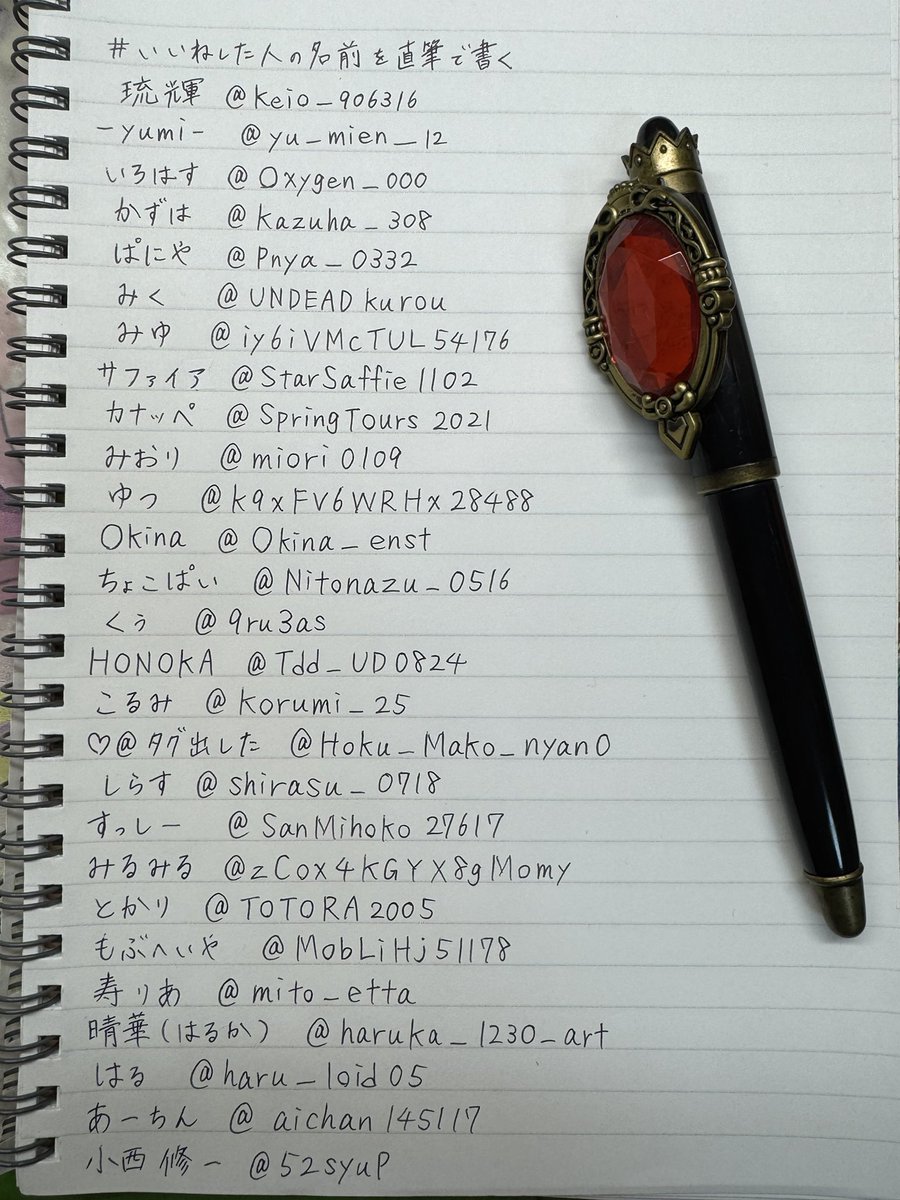 #いいねした人の名前を直筆で書く
琉輝 @keio_906316
-yumi- @yu_mien__12
いろはす @Oxygen_000
かずは @kazuha_308
ぱにや @Pnya_0332
みく @UNDEADkurou
みゆ @iy6iVMcTUL54176
サファイア @StarSaffie1102
カナッペ @SpringTours2021
みおり @miori0109
ゆつ @k9xFV6WRHx28488
Okina @Okina_enst
ちょこぱい @Nitonazu_0516
くぅ @9ru3as
HONOKA @Tdd_UD0824
こるみ @korumi_25
♡@タグ出した @Hoku_Mako_nyan0
しらす @shirasu_0718
すっしー @SanMihoko27617
みるみる @zCox4KGYX8gMomy
とかり @TOTORA2005
もぶへいや @MobLiHj51178
寿りあ @mito_etta
晴華(はるか) @haruka_1230_art
はる @haru_loid05
あーちん @aichan145117
小西修一 @52syuP